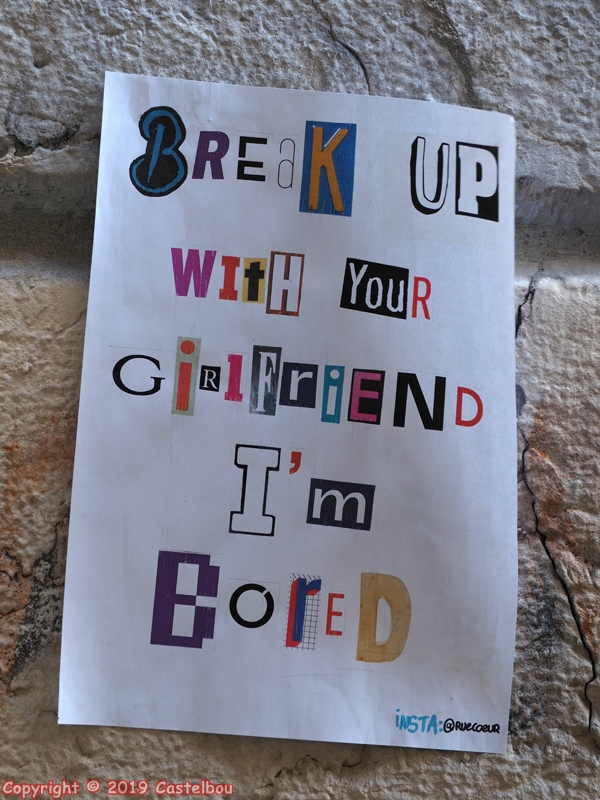 BREaK UP
WITH YOUR
GiRlFriENd
I'm
BOrED
iNSTA:@RUECOEUR
Copyright © 2019 Castelbou